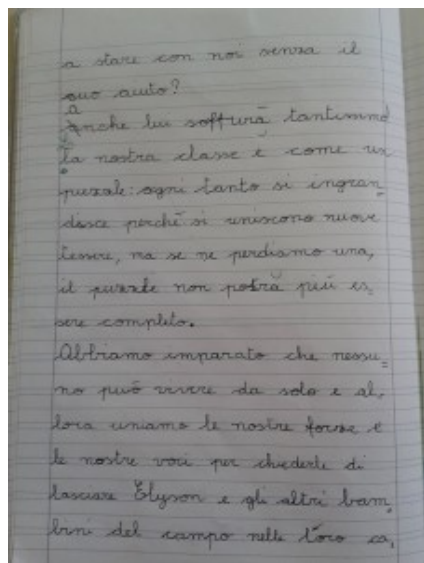 a stare con noi senza il
suo aiuto?
Anche lui soffrirà tantissimo
La nostra classe è come un
puzzle: ogni tanto si ingran
disce perché si uniscono nuove
tessere, ma se ne perdiamo una,
il puzzle non potrà più es
sere completo.
Abbiamo imparato che nessu=
no può vivere da solo e al,
lora uniamo le nostre forze e
le nostre voci per chiederle di
lasciare Elyson e gli altri bam
bini del campo nelle loro ca,